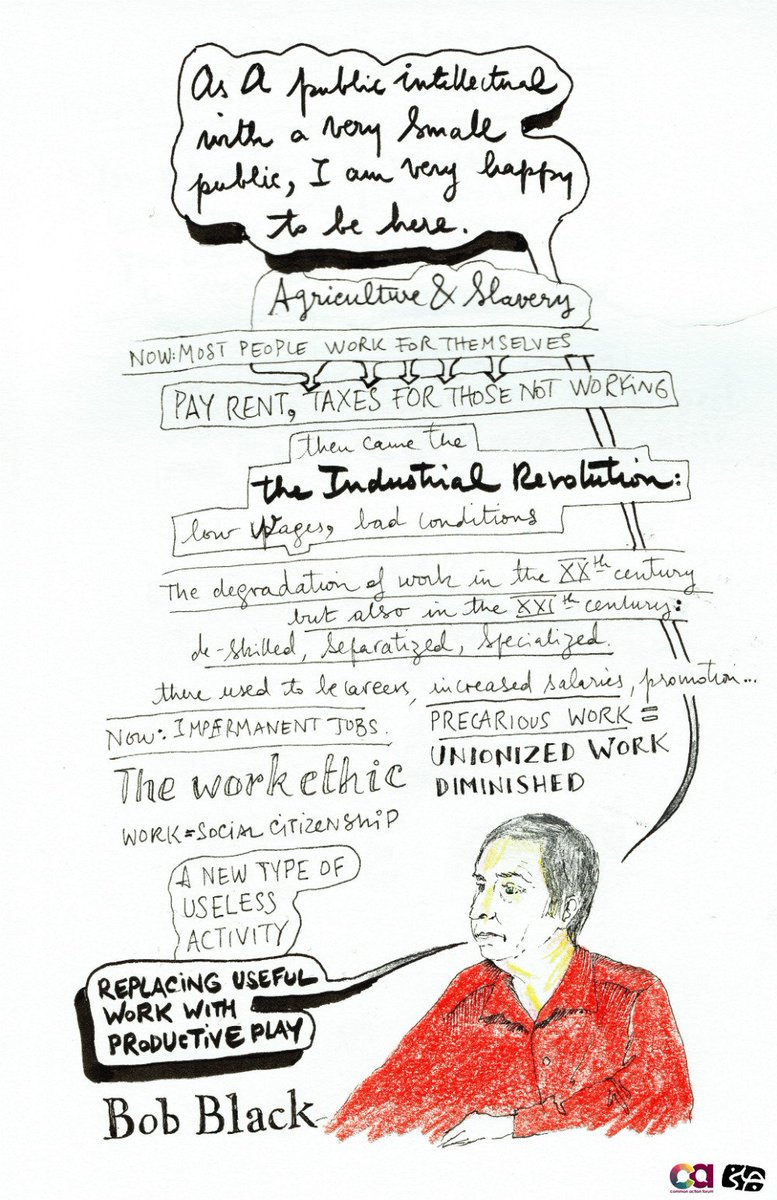 As A public intellectual
with a very small
public, I am very happy
to be here.
Agriculture & Slavery
NOW: MOST PEOPLE WORK FOR THEMSELVES
PAY RENT, TAXES FOR THOSE NOT WORKING
then came the
the Industrial Revolution:
low wages, bad conditions
The degradation of work in the XXth century
but also in the XXIth century:
de-skilled, separatized, specialized.
there used to be careers, increased salaries, promotion...
NOW: IMPERMANENT JOBS.
PRECARIOUS WORK =
UNIONIZED WORK
DIMINISHED
The work ethic
WORK=SOCIAL CITIZENSHIP
A NEW TYPE OF
USELESS
ACTIVITY
REPLACING USEFUL
WORK WITH
PRODUCTIVE PLAY
Bob Black
ca
common action forum